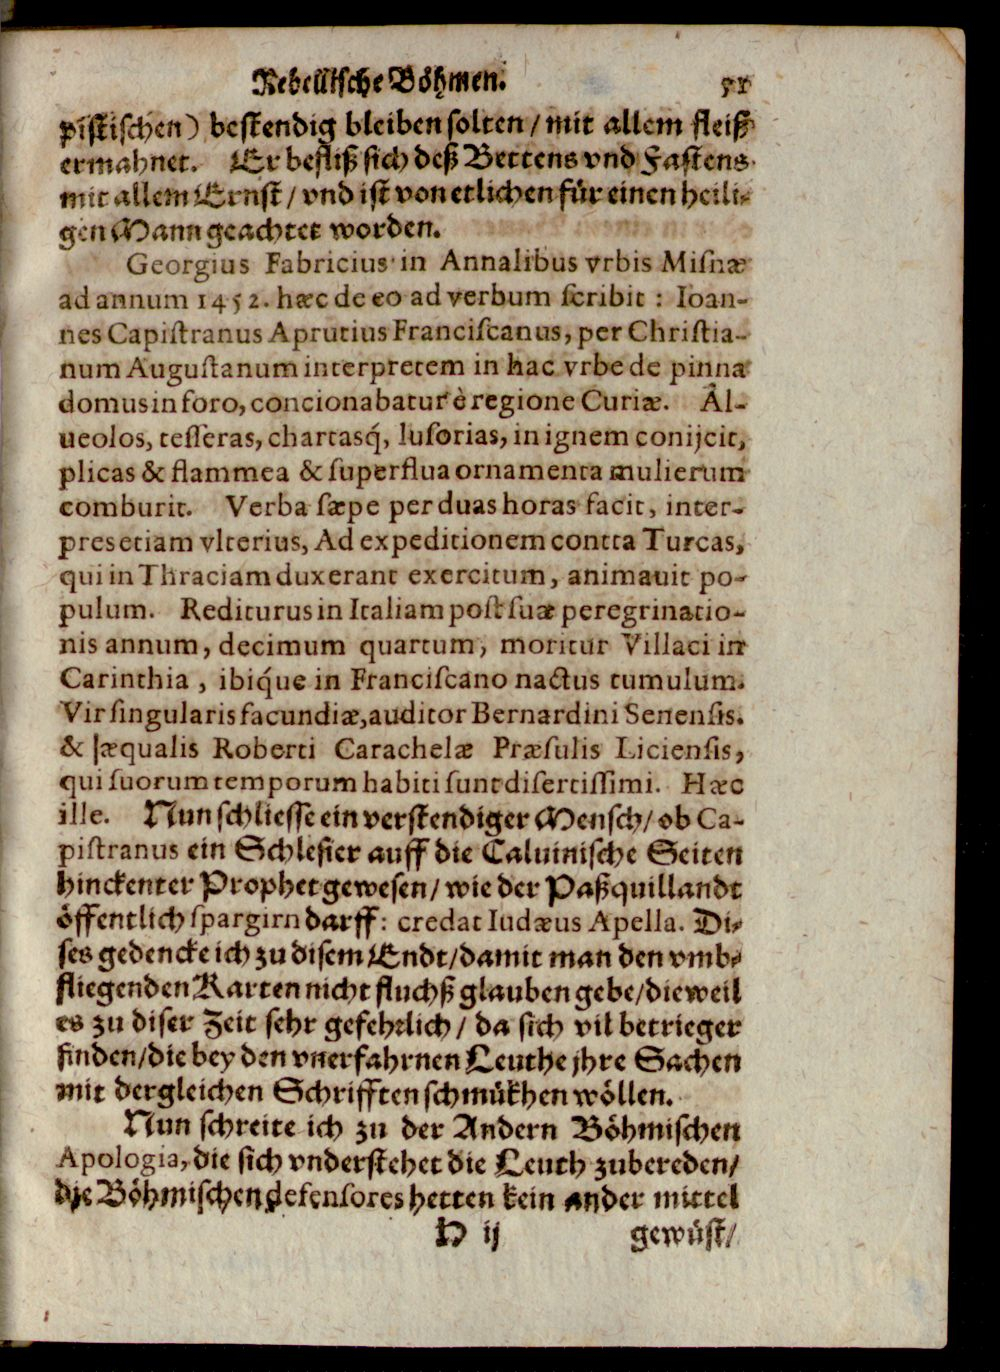 Rebellische Böhmen. 51
pistischen) bestendig bleiben solten / mit allem fleiß
ermahnet. Er befliß sich deß Bettens vnd Fastens
mit allem Ernst / vnd ist von etlichen für einen heili-
gen Mann geachtet worden.
Georgius Fabricius in Annalibus vrbis Misnæ
ad annum 1452. hæc de eo ad verbum scribit : Ioan-
nes Capistranus Aprutius Franciscanus, per Christia-
num Augustanum interpretem in hac vrbe de pinna
domus in foro, concionabatur è regione Curiæ. Al-
ueolos, tesseras, chartasq́, lusorias, in ignem conijcit,
plicas & flammea & superflua ornamenta mulierum
comburit. Verba sæpe per duas horas facit, inter-
pres etiam vlterius, Ad expeditionem contta Turcas,
qui in Thraciam duxerant exercitum, animauit po-
pulum. Rediturus in Italiam post suæ peregrinatio-
nis annum, decimum quartum, moritur Villaci in
Carinthia , ibiq́ue in Franciscano nactus tumulum.
Vir singularis facundiæ, auditor Bernardini Senensis.
& æqualis Roberti Carachelæ Præsulis Liciensis,
qui suorum temporum habiti sunt disertissimi. Hæc
ille. Nun schliesse ein verstendiger Mensch / ob Ca-
pistranus ein Schlesier auff die Caluinische Seiten
hinckenter Prophet gewesen / wie der Paßquillandt
öffentlich spargirn darff: credat Iudæus Apella. Di-
ses gedencke ich zu disem Endt / damit man den vmb-
fliegenden Karten nicht fluchß glauben gebe / dieweil
es zu diser Zeit sehr gefehrlich / da sich vil betrieger
finden / die bey den vnerfahrnen Leuthe jhre Sachen
mit dergleichen Schrifften schmükhen wöllen.
Nun schreite ich zu der Andern Böhmischen
Apologia, die sich vnderstehet die Leuth zubereden /
die Böhmischen defensores hetten kein ander mittel
H ij gewüst /